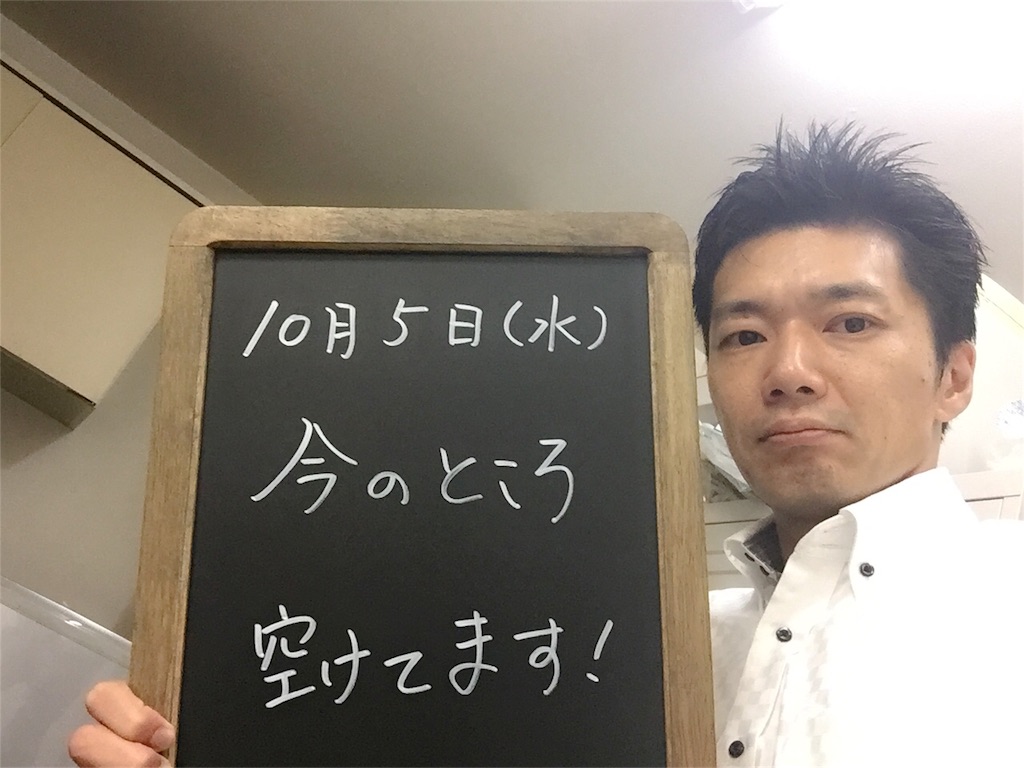 10月5日(水)
今のところ
空けてます!